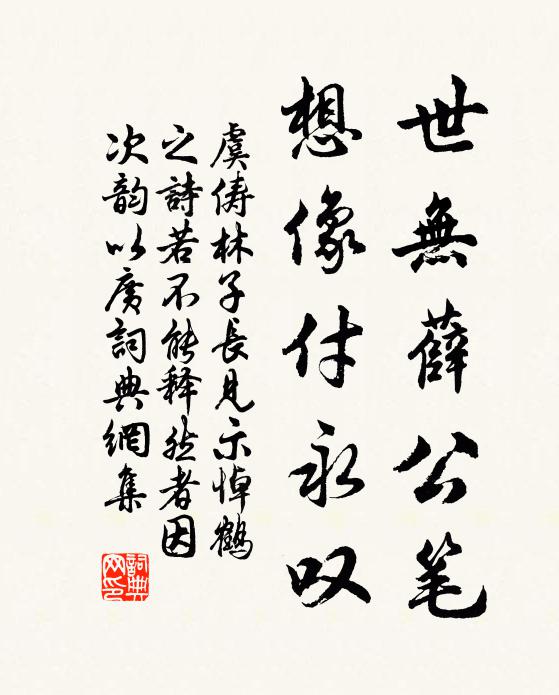 世無薛公笔
想像付永叹
虞俦林子長見示悼鶴
之詩若不能释然者因
次韵以广詞典網集
詞典网印